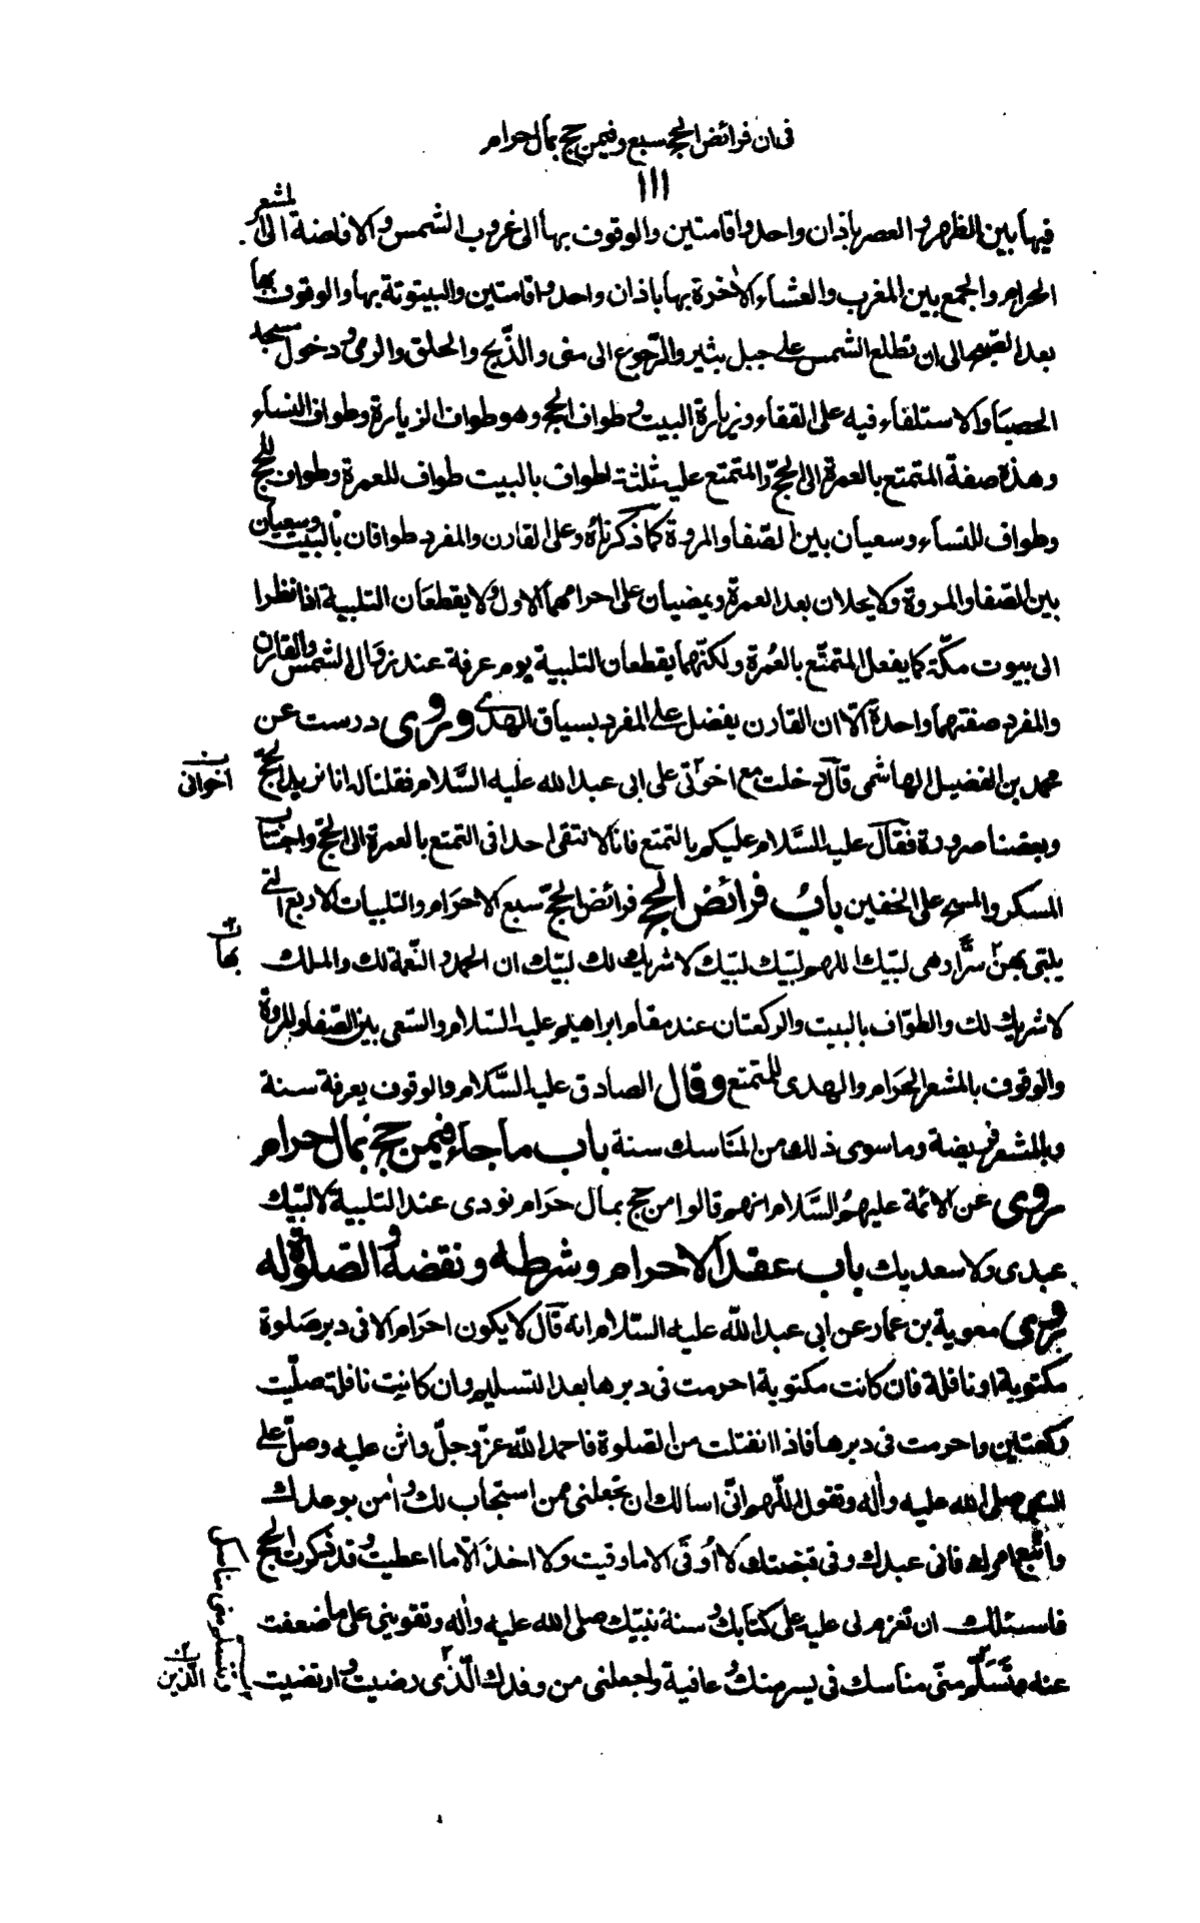 فى ان فرائض الحج سبع وفيمن حج بمال حرام
١١١
فيها بين الظهر والعصر باذان واحد واقامتين والوقوف بها الى غروب الشمس والافاضة الى المشعر
الحرام والجمع بين المغرب والعشاء الاخرة بها باذان واحد واقامتين والبيتوتة بها والوقوف بها
بعد الصبح الى ان تطلع الشمس على جبل بثير والرجوع الى منى والذبح والحلق والرمى ودخول مسجد
الحصباء والاستلقاء فيه على القفاء وزيارة البيت وطواف الحج وهو طواف الزيارة وطواف النساء
وهذه صفة المتمتع بالعمرة الى الحجّ والمتمتع عليه ثلثة اطواف بالبيت طواف للعمرة وطواف للحج
وطواف للنساء وسعيان بين الصّفا والمروة كما ذكرناه وعلى القارن والمفرد طوافان بالبيت وسعيان
بين الصّفا والمروة ولا يحلان بعد العمرة ويمضيان على احرامهما الاول ولا يقطعان التلبية اذا نظرا
الى بيوت مكّة كما يفعل المتمتّع بالعُمرة ولكنّهما يقطعان التلبية يوم عرفة عند زوال الشمس والقارن
والمفرد صفتهما واحدة الّا ان القارن يفضل على المفرد بسياق الهدى وروى درست عن
محمد بن الفضيل الهاشمى قال دخلت مع اخوتى على ابى عبد الله عليه السَّلام فقلنا له انا نريد الحجّ
اخوانى ن
وبعضنا صرورة فقال عليه السَّلام عليكم بالتمتع فانا لا نتقى احدا فى التمتع بالعمرة الى الحجّ واجتناب
المسكر والمسح على الخفين باب فرائض الحج فرائض الحجّ سبع الاحرام والتلبيات الاربع التى
يلبّى بهنّ سرًّا وهى لبّيك اللهم لبّيك لبّيك لا شريك لك لبّيك ان الحمد والنّعمة لك والملك
بها ن
لا شريك لك والطوّاف بالبيت والركعتان عند مقام ابراهيم عليه السّلام والسّعى بين الصّفا والمروة
والوقوف بالمشعر الحرام والهدى للمتمتع وقال الصادق عليه السَّلام والوقوف بعرفة سنة
وبالمشعر فريضة وما سوى ذلك من المناسك سنة باب ما جاء فيمن حج بمال حرام
روى عن الائمة عليهمُ السَّلام انهم قالوا من حج بمال حرام نودى عند التلبية لا لبّيك
عبدى ولا سعديك باب عقد الاحرام وشرطه ونقضه والصّلوة له
روى معوية بن عمار عن ابى عبد اللّه عليه السّلام انه قال لا يكون احرام الا فى دبر صلوة
مكتوبة او نافلة فان كانت مكتوبة احرمت فى دبرها بعد التسليم وان كانت نافلة صلّيت
ركعتين واحرمت فى دبرها فاذا انفتلت من الصلوة فاحمد اللّه عزّ وجلّ واثن عليه وصلّ على
النبى صلى الله عليه واله وتقول اللّهم انّى اسالك ان تجعلنى ممن استجاب لك وامن بوعدك
واتّبع امرك فانى عبدك وفى قبضتك لا اُوقى الا ما وقيت ولا اخذ الّا ما اعطيت وقد ذكرت الحج
فاسئلك ان تعزم لى عليه على كتابك وسنة نبيّك صلى الله عليه واله وتقوينى على ما ضعفت
عنه وتسلّم منّى مناسكى فى يسر منك وعافية واجعلنى من وفدك الّذى رضيت وارتضيت
الّذين ن